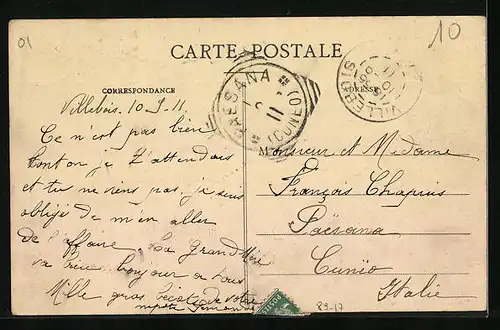 01
10
CARTE POSTALE
CORRESPONDANCE
ADRESSE
PAESANA (CUNEO)
11
VILLEBOIS
Villebois 10-9-11
Ce n'est pas bien
on je t'attendais
et tu ne viens pas je suis
obligé de m'en aller
de l'affaire. La Grand Mère
va bien bonjour a tous
Mille gros de votre
Monsieur et Madame
François Chapuis
Païsana
Cunéo
Italie
P9-17